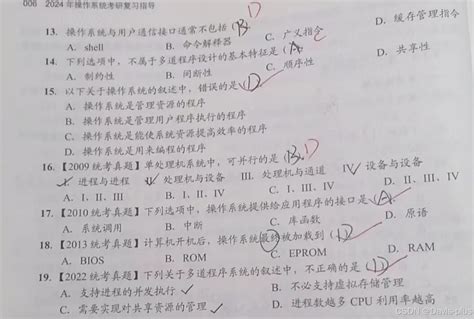 006 2024年操作系统考研复习指导
13. 操作系统与用户通信接口通常不包括(B.) D
A. shell B. 命令解释器 C. 广义指令 D. 缓存管理指令
14. 下列选项中,不属于多道程序设计的基本特征是(A.
A. 制约性 B. 间断性 C. 顺序性 D. 共享性
15. 以下关于操作系统的叙述中,错误的是(D)
A. 操作系统是管理资源的程序
B. 操作系统是管理用户程序执行的程序
C. 操作系统是能使系统资源提高效率的程序
D. 操作系统是用来编程的程序
16.【2009统考真题】单处理机系统中,可并行的是(B. D
I. 进程与进程 II. 处理机与设备 III. 处理机与通道 IV. 设备与设备
A. I、II、III B. I、II、IV C. I、III、IV D. II、III、IV
17.【2010统考真题】下列选项中,操作系统提供给应用程序的接口是(A.)
A. 系统调用 B. 中断 C. 库函数 D. 原语
18.【2013统考真题】计算机开机后,操作系统最终被加载到(D)
A. BIOS B. ROM C. EPROM D. RAM
19.【2022统考真题】下列关于多道程序系统的叙述中,不正确的是(D)
A. 支持进程的并发执行 B. 不必支持虚拟存储管理
C. 需要实现对共享资源的管理 D. 进程数越多CPU利用率越高